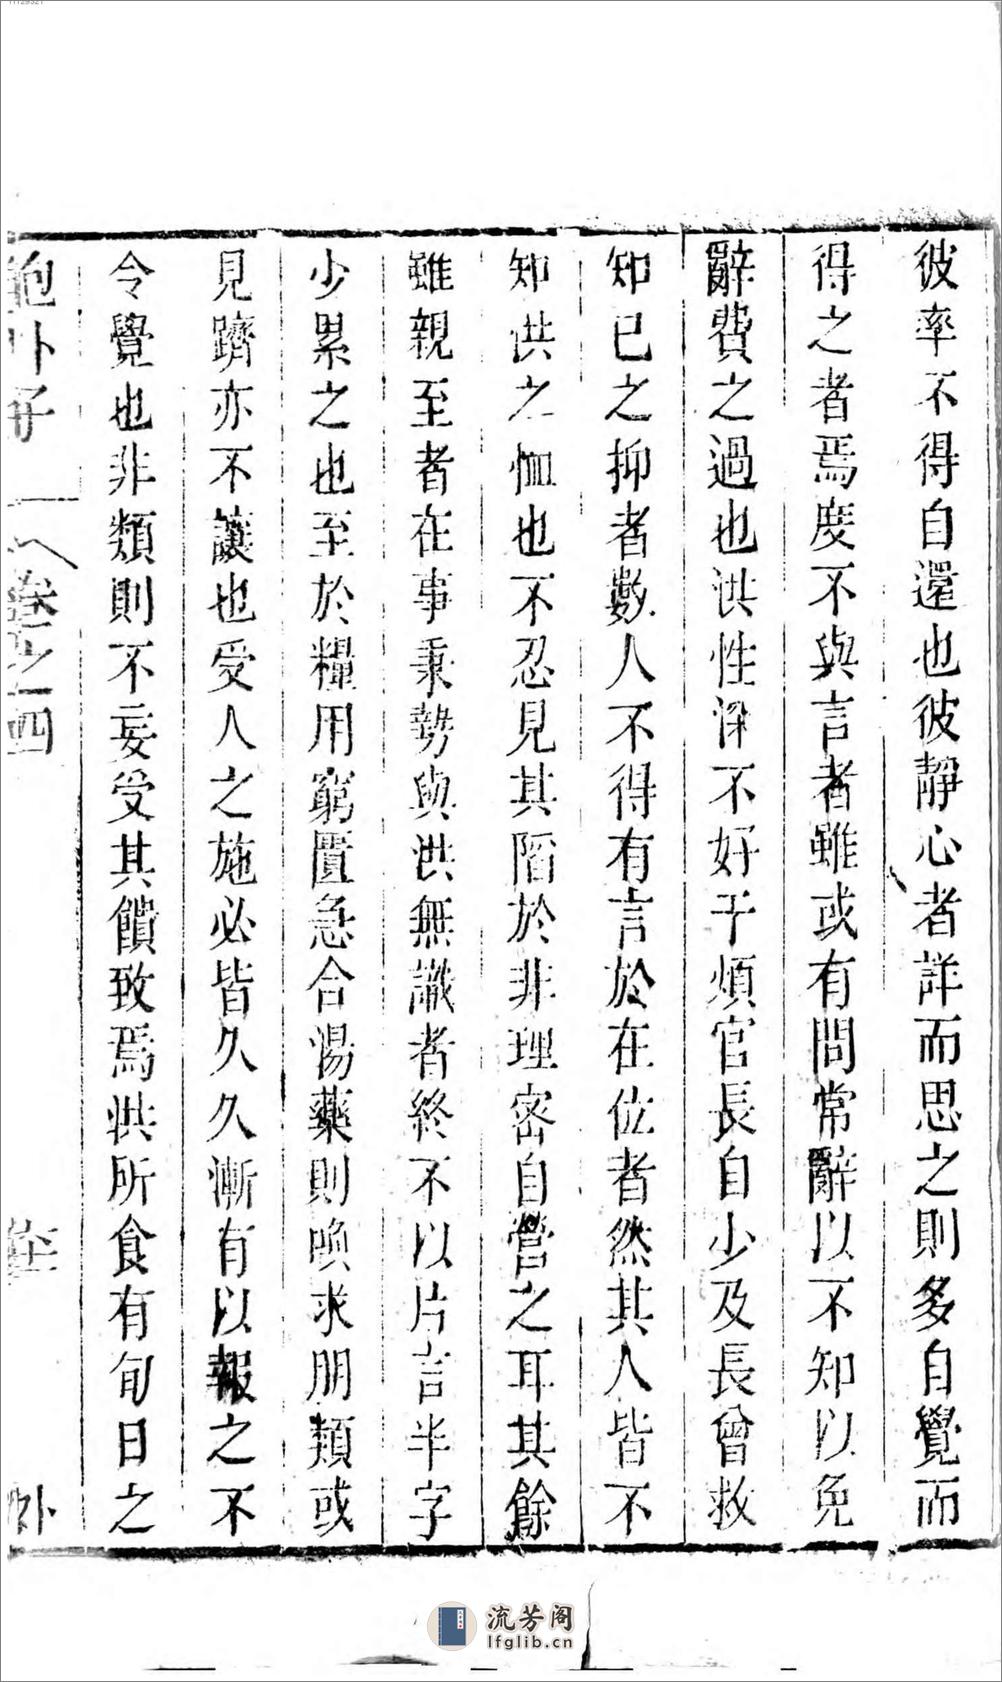 彼率不得自還也彼靜心者詳而思之則多自覺而
得之者焉度不與言者雖或有問常辭以不知以免
辭費之過也洪性深不好干煩官長自少及長曾救
知已之抑者數人不得有言於在位者然其人皆不
知洪之恤也不忍見其陷於非理密自營之耳其餘
雖親至者在事秉勢與洪無識者終不以片言半字
少累之也至於糧用窮匱急合湯藥則喚求朋類或
見躋亦不讓也受人之施必皆久久漸有以報之不
令覺也非類則不妄受其饋致焉洪所食有旬日之
抱卜子
卷之四
外
流芳阁
lfglib.cn